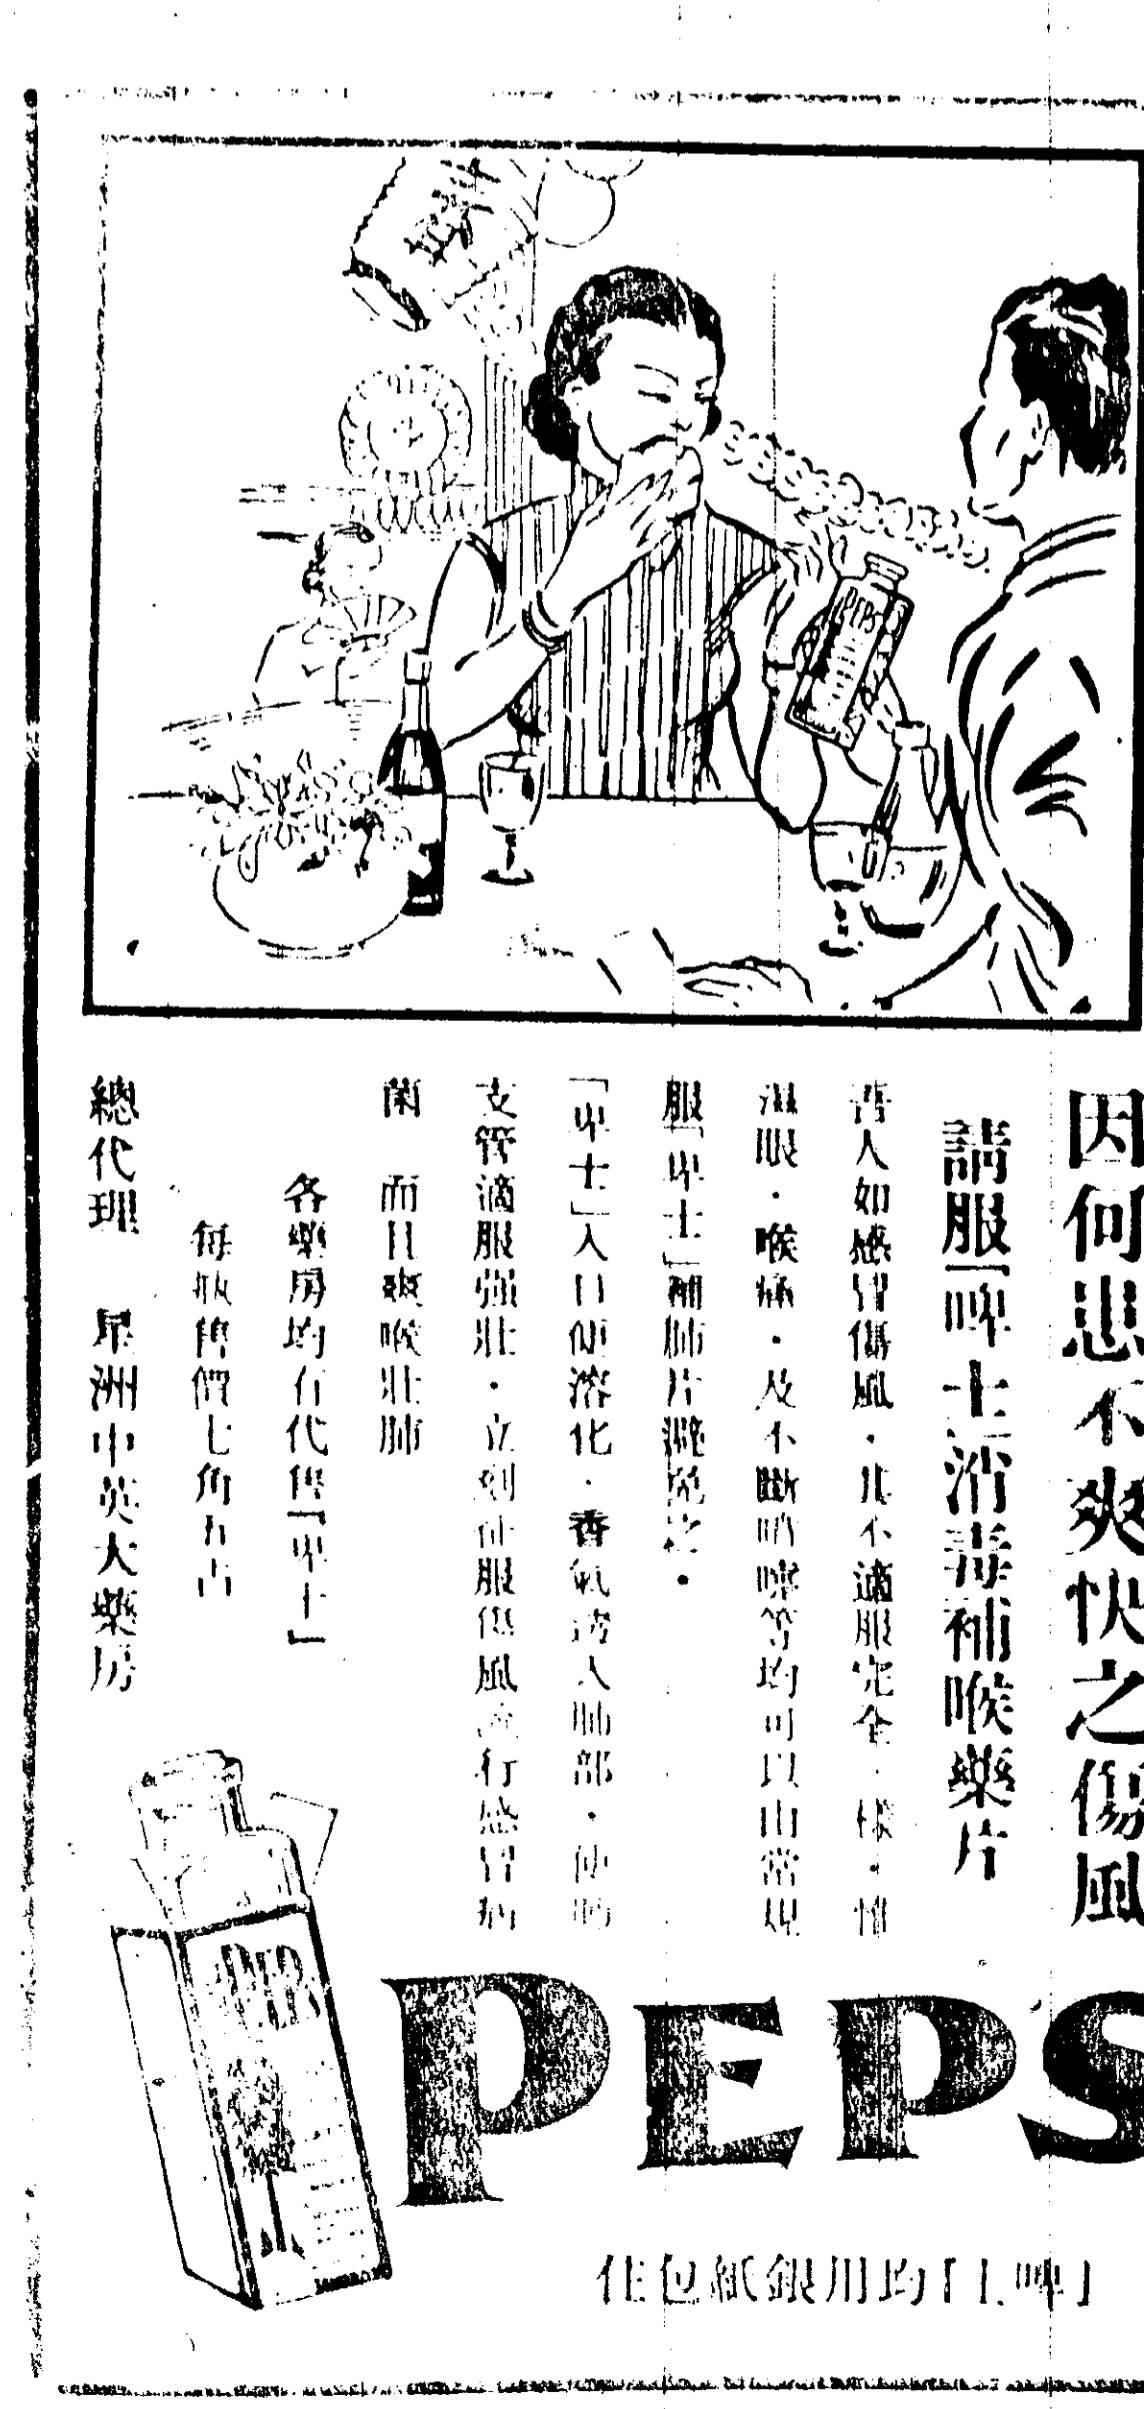 因何患不爽快之傷風
請服「啤士」消毒補喉藥片
吾人如感冒傷風・其不適服完全一樣・惟
濕眼・喉痛・及不斷哨嗽等均可以由常規
服「卑士」補肺片避免之・
「卑士」入口便溶化・香氣透入肺部・使肺
支管滴服强壯・立刻征服傷風流行感冒病
菌 而且爽喉壯肺
各藥房均有代售「卑士」
每瓶售價七角五占
總代理 星洲中英大藥房
PEPS
PEPS
PEPS
「啤士」均用銀紙包住